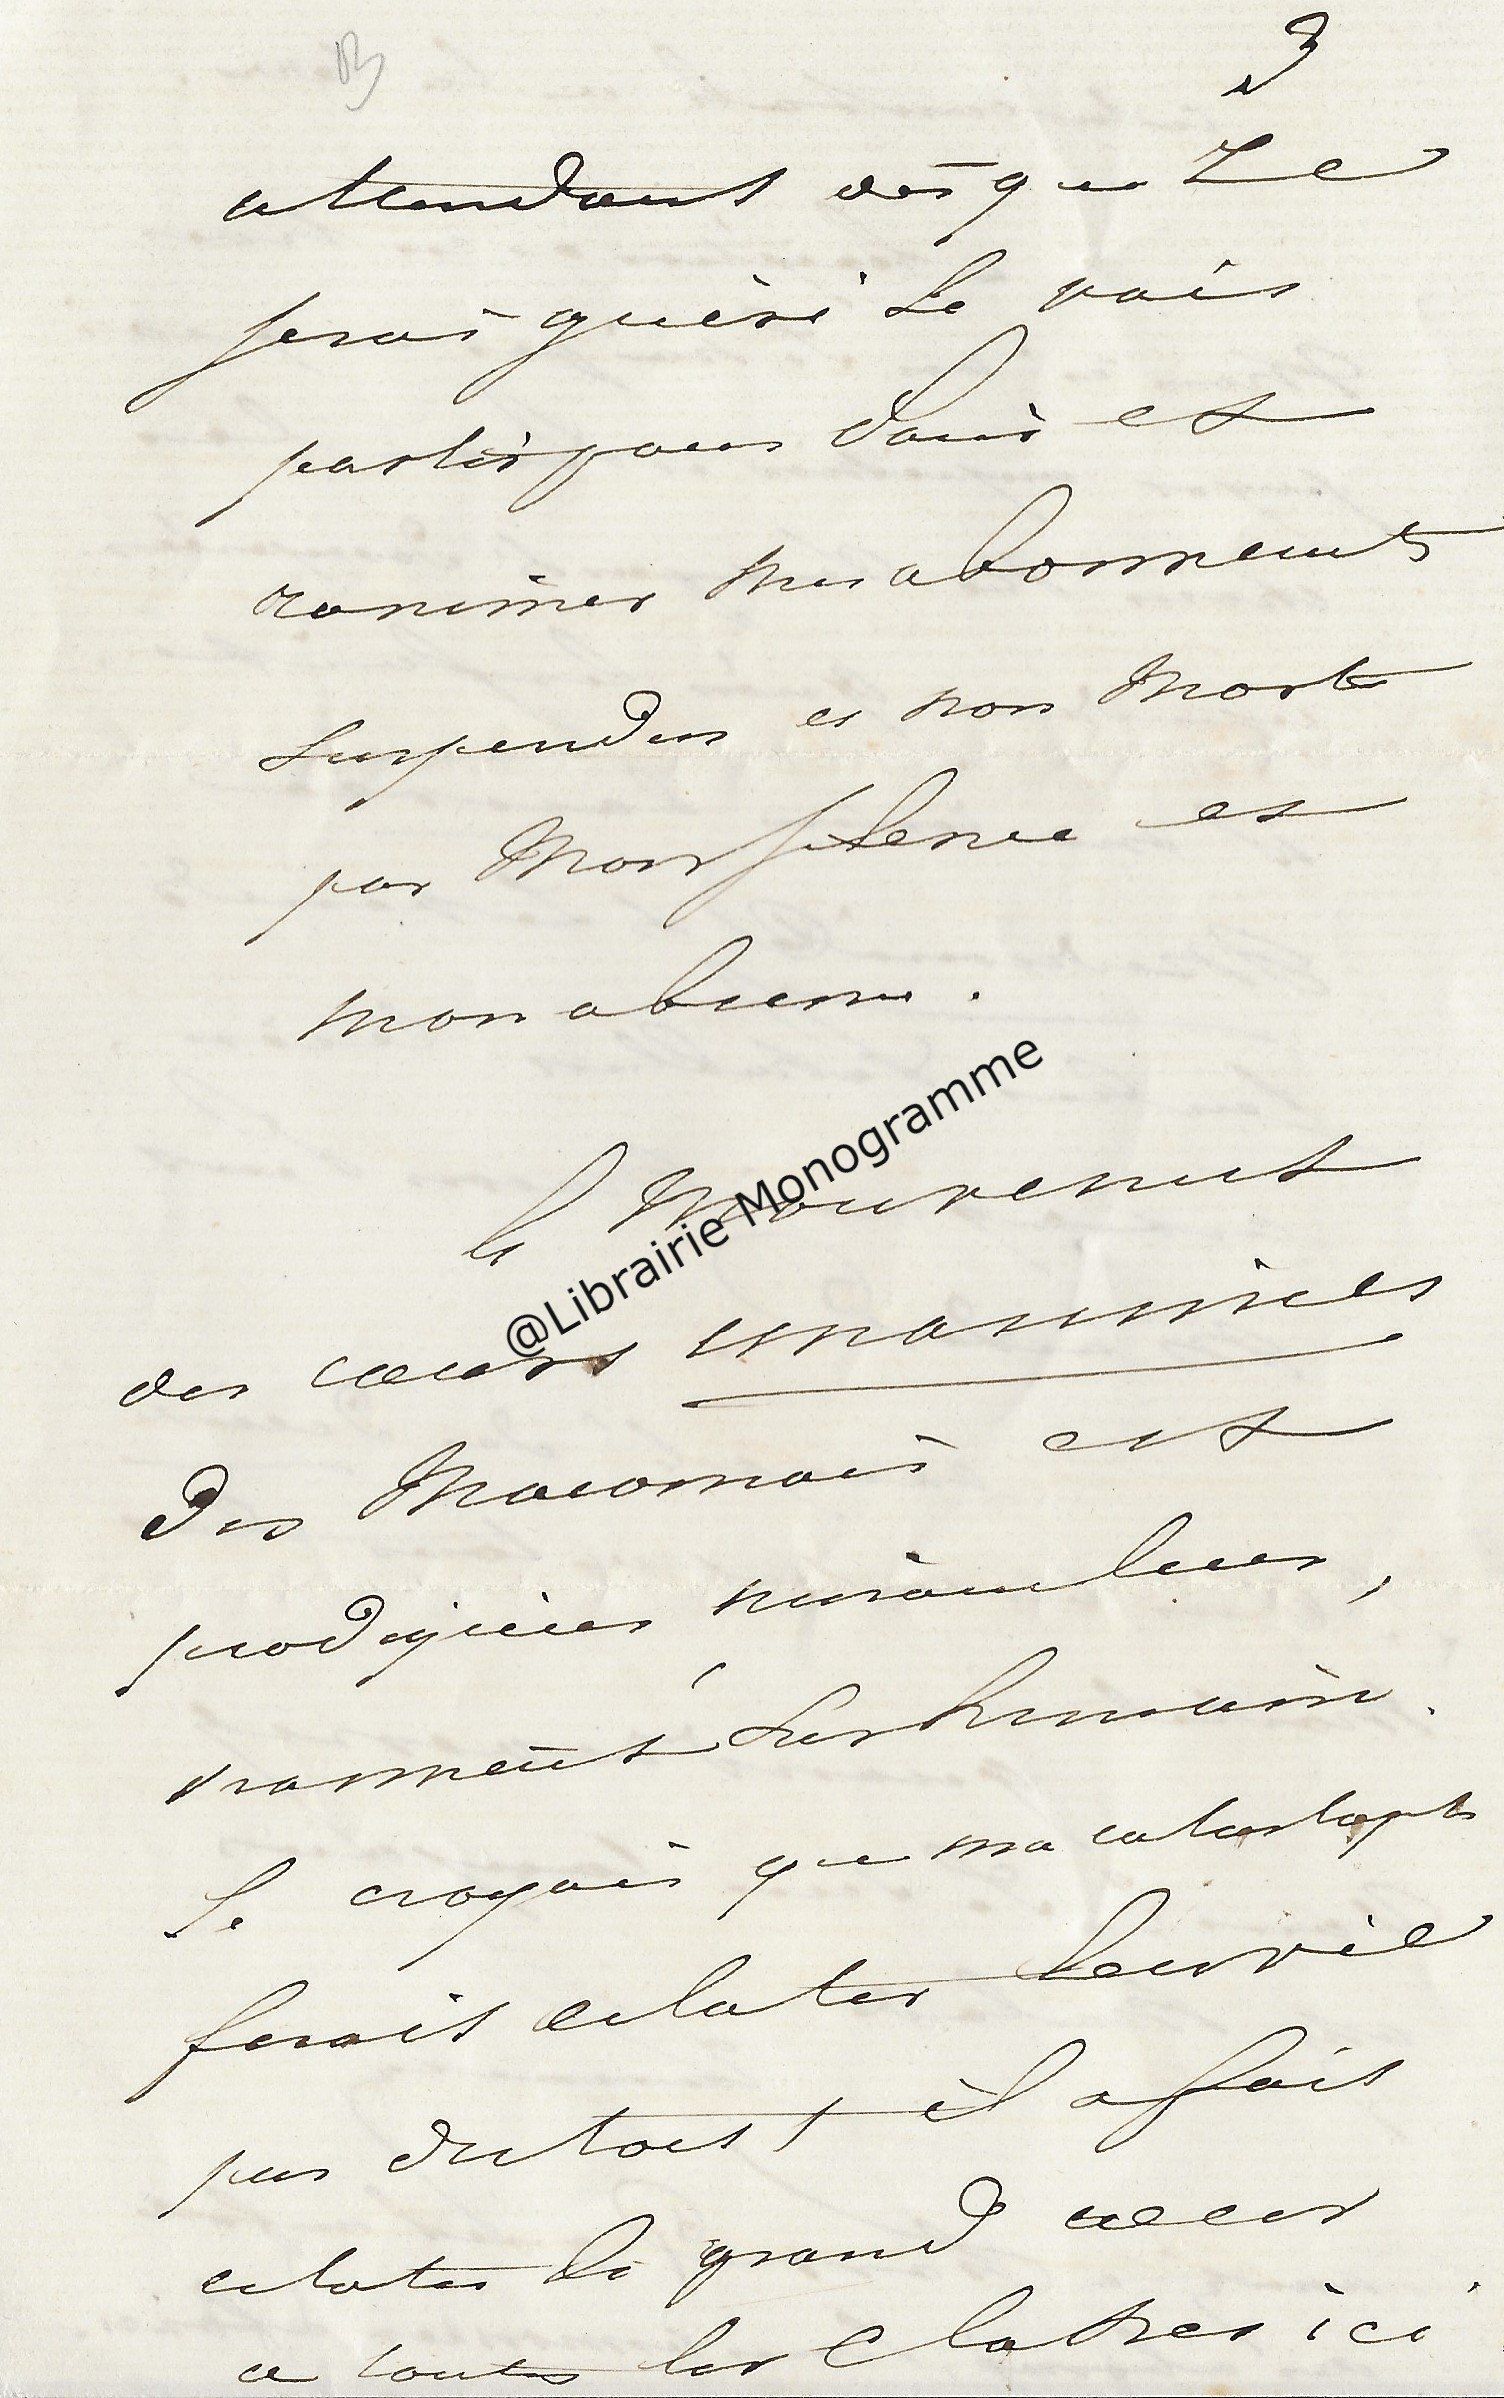 3
attendant dès que Je
serai guéri Je vais
partir pour Paris et
ranimer mes abonnements
suspendus et non morts
par mon silence et
mon absence.
le Mouvement
@Librairie Monogramme
des cœurs unanimes
des Maconnais est
prodigieux miraculeux,
vraiment surhumain.
Je croyais que ma catastrophe
ferait eclater leur vie
pas du tout! il a fait
eclater le grand cœur
a toutes les classes ici